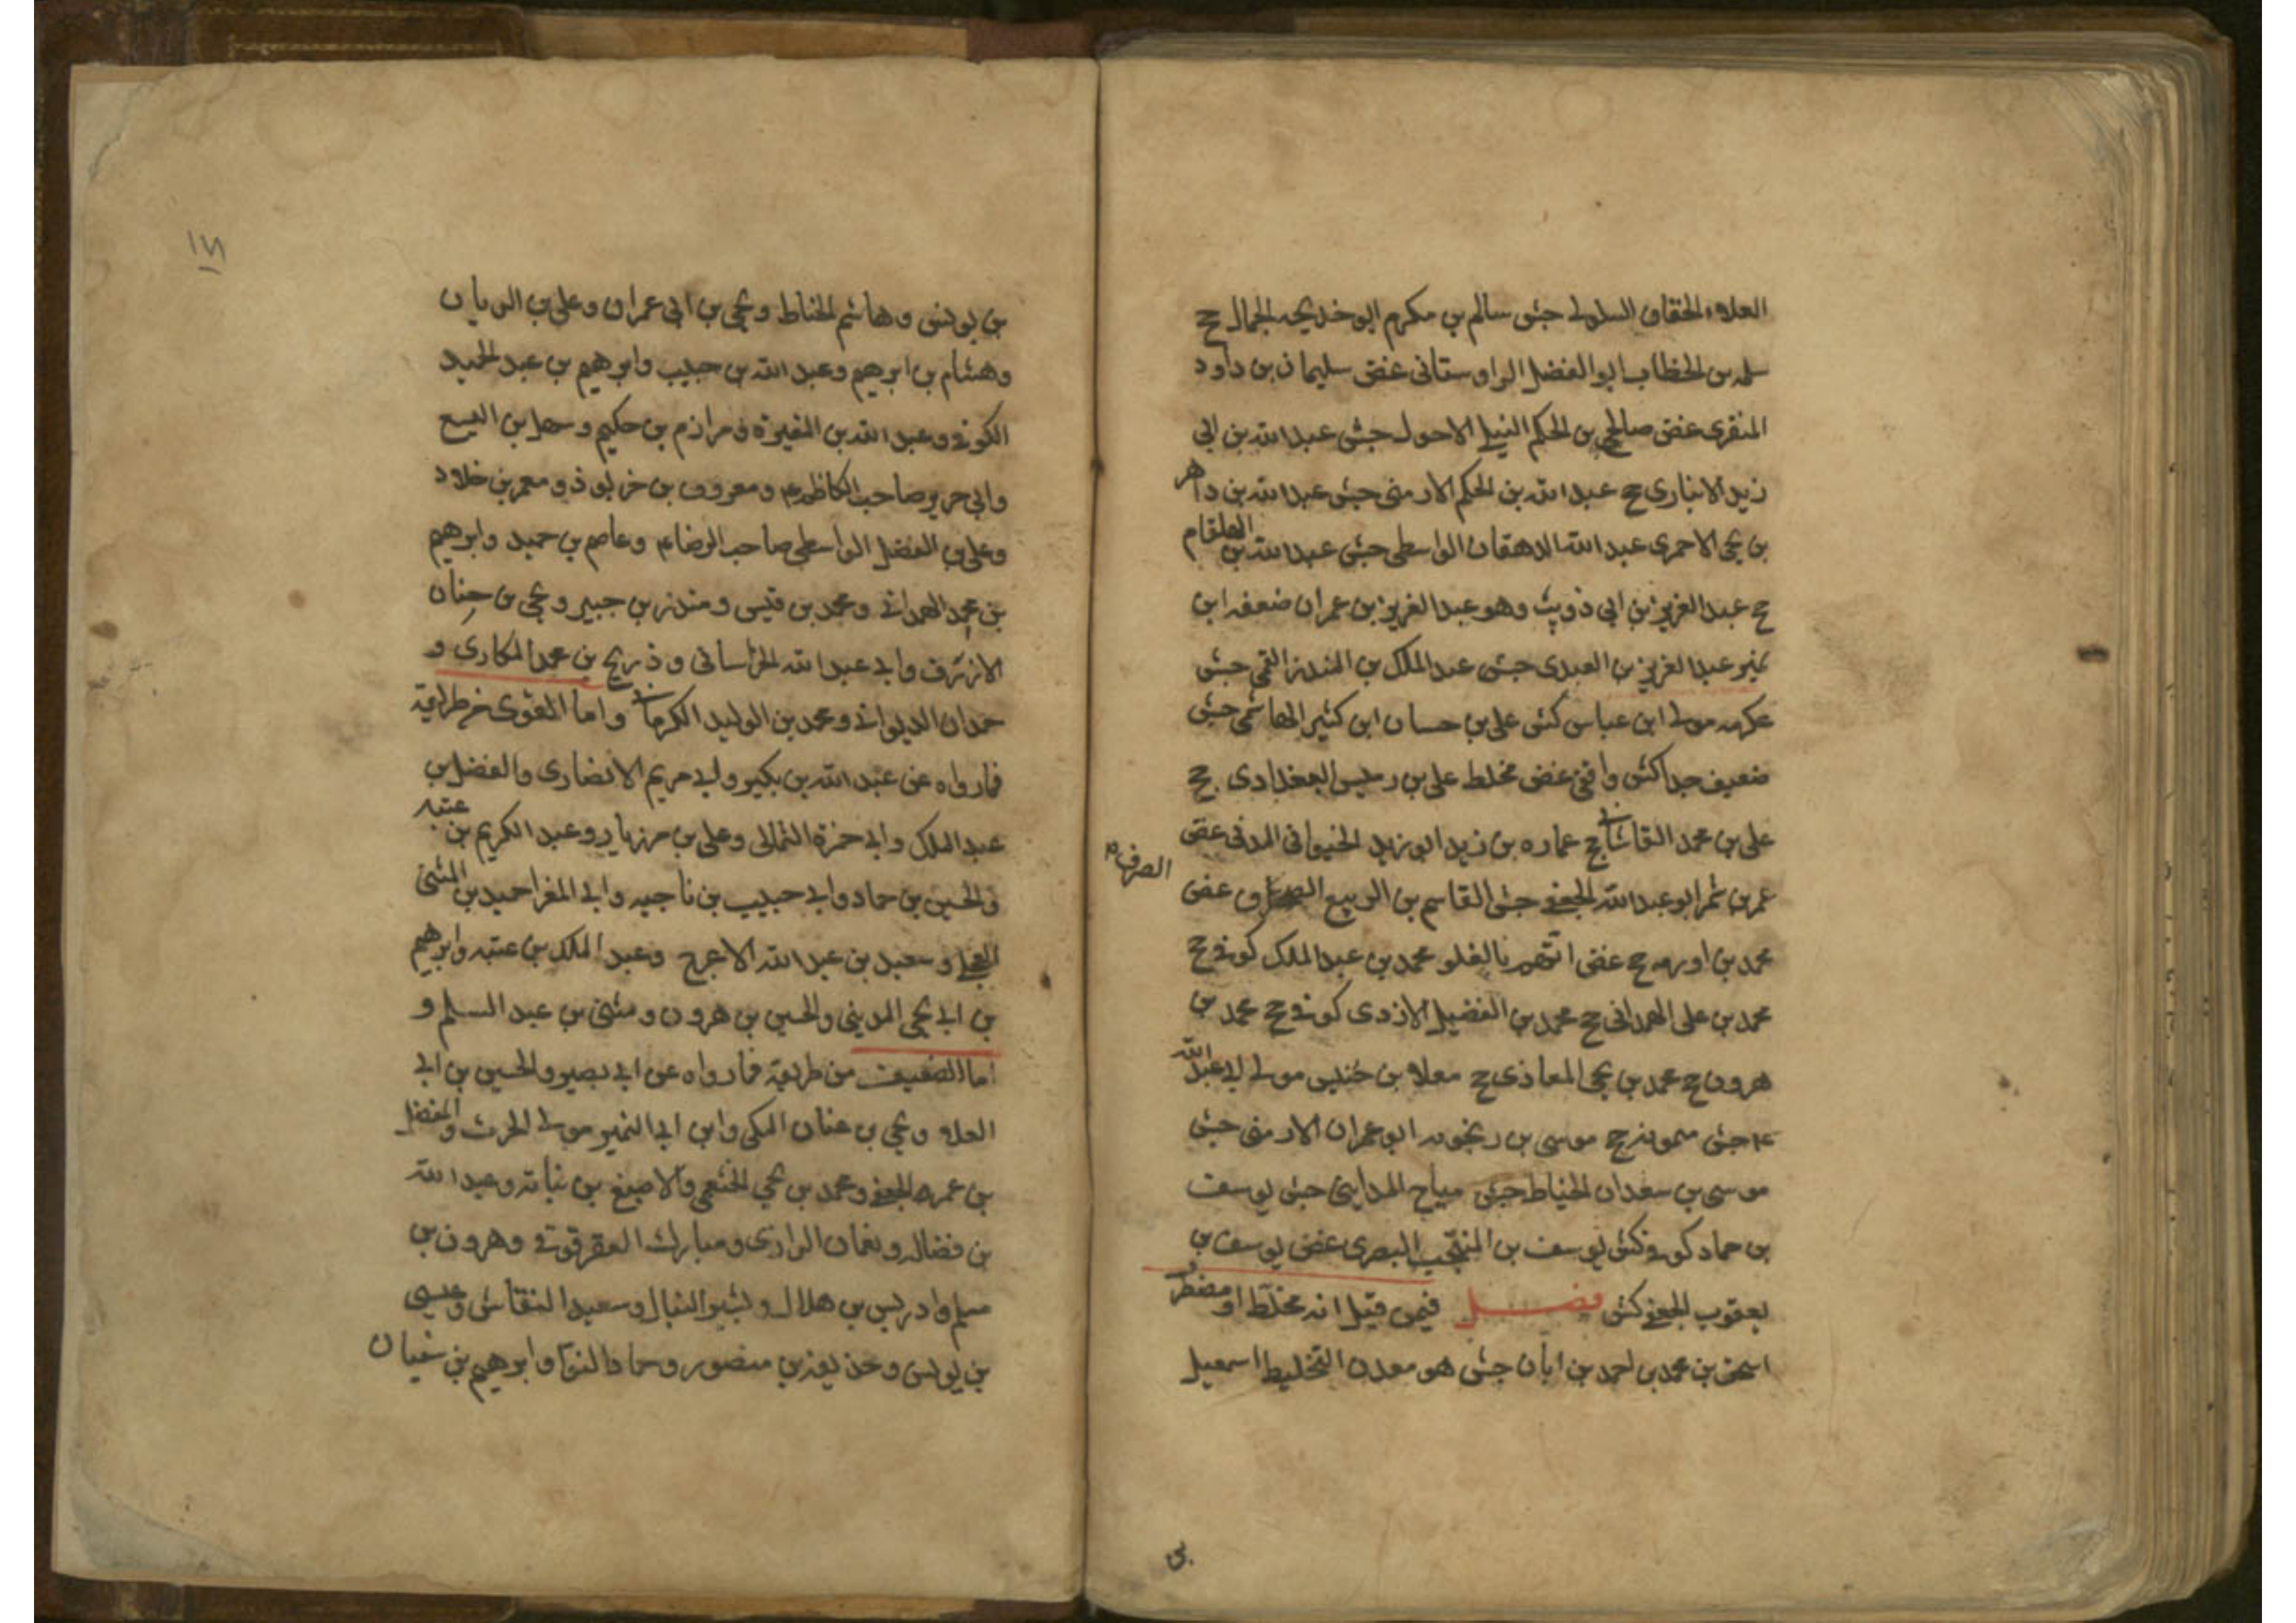 العلاء الخفاف السلولى جش سالم بن مكرم ابو خديجه الجمال ح
سلمه بن الخطاب ابو الفضل الراوستانى غض سليمان بن داود
المنقرى غض صالح بن الحكم النيلى الاحول جش عبد الله بن ابى
زيد الانبارى ح عبد الله بن الحكم الارمنى جش عبد الله بن داهر
بن يحيى الاحمرى عبد الله الدهقان الواسطى جش عبد الله بن العلقام
ح عبد العزيز بن ابى ذويب وهو عبد العزيز بن عمران ضعفه ابن
نمير عبد العزيز بن العبدى جش عبد الملك بن المنذر القمى جش
عكرمه مولى ابن عباس كش على بن حسان ابن كثير الهاشمى جش
ضعيف جدا كش واقفى غض مخلط على بن رميس البغدادى ح
على بن محمد القاسانى ح عماره بن زيد ابو زيد الخيوانى المدنى غض
عمر بن شمر ابو عبد الله الجعفى جش القاسم بن الربيع الصرف غض
الصراف
محمد بن اورمه ح غض اتهم بالغلو محمد بن عبد الملك كوفى ح
محمد بن على الهمدانى ح محمد بن الفضيل الازدى كوفى ح محمد بن
هرون ح محمد بن يحيى المعاذى ح معلا بن خنيس مولى ابى عبد الله
ع جش ح موسى بن رنجويه ابو عمران الارمنى جش
موسى بن سعدان الحناط جش مياح المداينى جش يوسف
بن حماد كوفى كش يوسف بن البصرى غض يوسف بن
يعقوب الجعفى كش فصل فيمن قيل انه مخلط او مضطر
اسحق بن محمد بن احمد بن ابان جش هو معدن التخليط اسمعيل
بن
١٧١
بن يونس وهاشم الحناط ويحيى بن ابى عمران وعلى بن الريان
وهشام بن ابرهيم وعبد الله بن حبيب وابرهيم بن عبد الحميد
الكوفى وعبد الله بن المغيرة ومرازم بن حكيم وسهل بن اليسع
وابى جرير صاحب الكاظم ع ومعروف بن خربوذ ومعمر بن خلاد
وعلى بن الفضل الواسطى صاحب الرضا ع وعاصم بن حميد وابرهيم
بن محمد الهمدانى ومحمد بن قيس ومنذر بن جبير ويحيى بن حسان
الازرق وابى عبد الله الخراسانى وذريح بن محمد المكارى و
حمدان الديوانى ومحمد بن الوليد الكرمانى واما القوى من طريقه
فما رواه عن عبد الله بن بكير وابى مريم الانصارى والفضل بن
عبد الملك وابى حمزة الثمالى وعلى بن مهزيار وعبد الكريم بن عتبه
والحسين بن حماد وابى حبيب بن ناجيه وابى المغرا حميد بن المثنى
العجلى وسعيد بن عبد الله الاعرج وعبد الملك بن عتبه وابرهيم
بن ابى يحيى المدينى والحسين بن هرون ومثنى بن عبد السلم و
اما الضعيف من طريقه فما رواه عن ابى بصير والحسين بن ابى
العلا ويحيى بن حنان المكى وابن ابى النمير مولى الحرث والمفضل
بن عمر الجعفى ومحمد بن يحيى الخثعمى والاصبغ بن نباته وعبد الله
بن فضاله ونعمان الرازى ومبارك العقرقوفى وهرون بن
مسلم وادريس بن هلال وبشير النبال وسعيد النقاش وعيسى
بن يونس وحذيفه بن منصور وحماد النوا وابرهيم بن سفيان